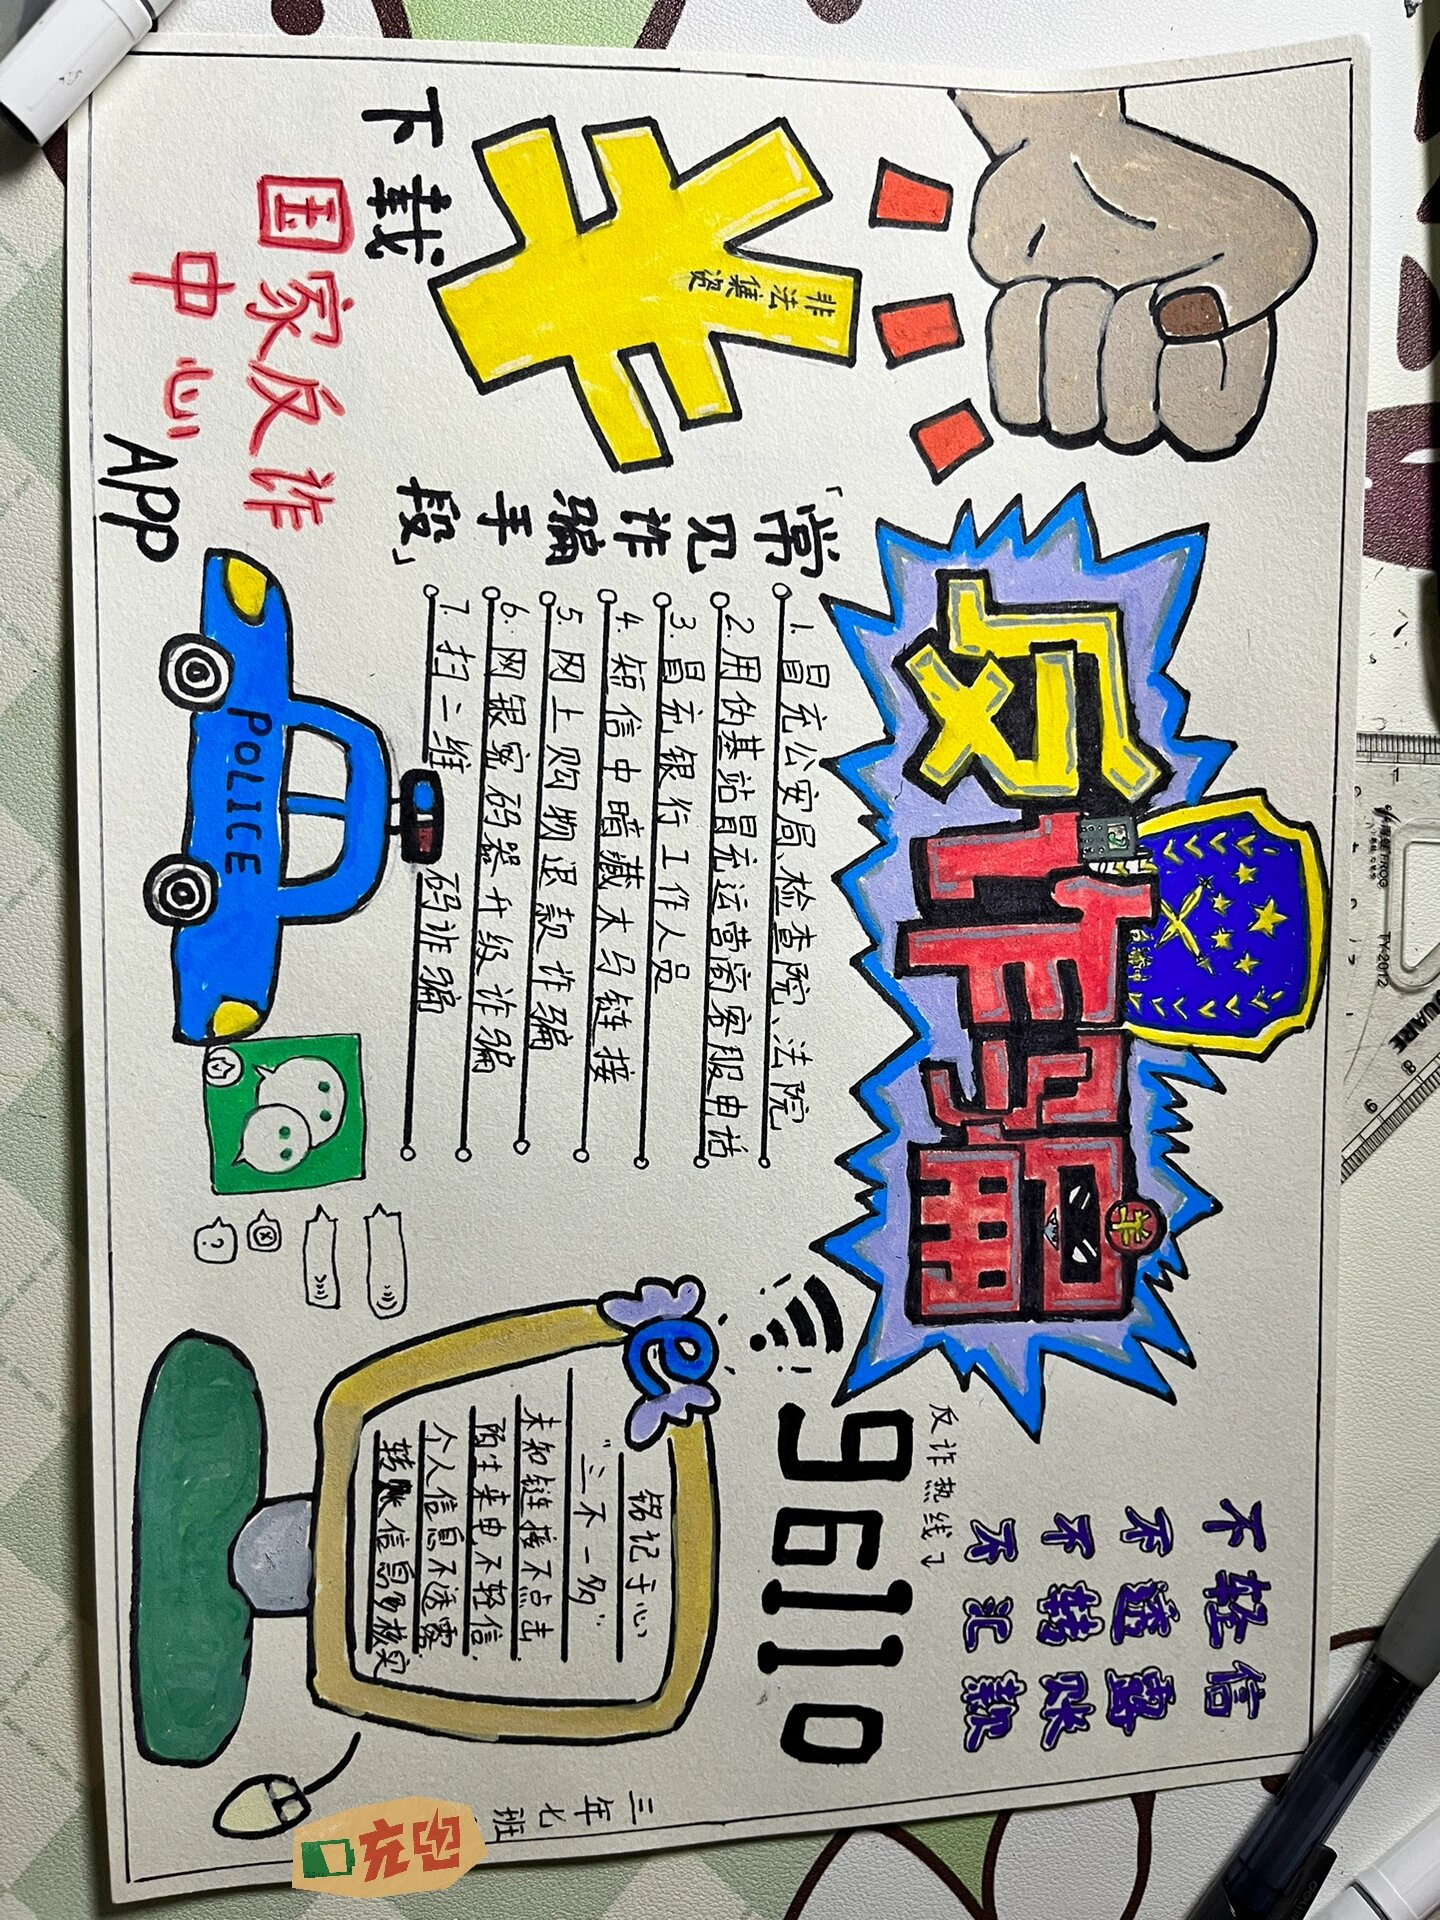 反诈骗
反诈中
不轻信
不透露
不转账
不汇款
反诈热线
96110
非法集资
下载
国家反诈
中心
APP
「常见诈骗手段」
1. 冒充公安局、检查院、法院
2. 用伪基站冒充运营商客服电话
3. 冒充银行工作人员
4. 短信中暗藏木马链接
5. 网上购物退款诈骗
6. 网银密码器升级诈骗
7. 扫二维码诈骗
POLICE
e
铭记于心
"三不一多"
未知链接不点击
陌生来电不轻信
个人信息不透露
转账信息多核实
三年七班
充电